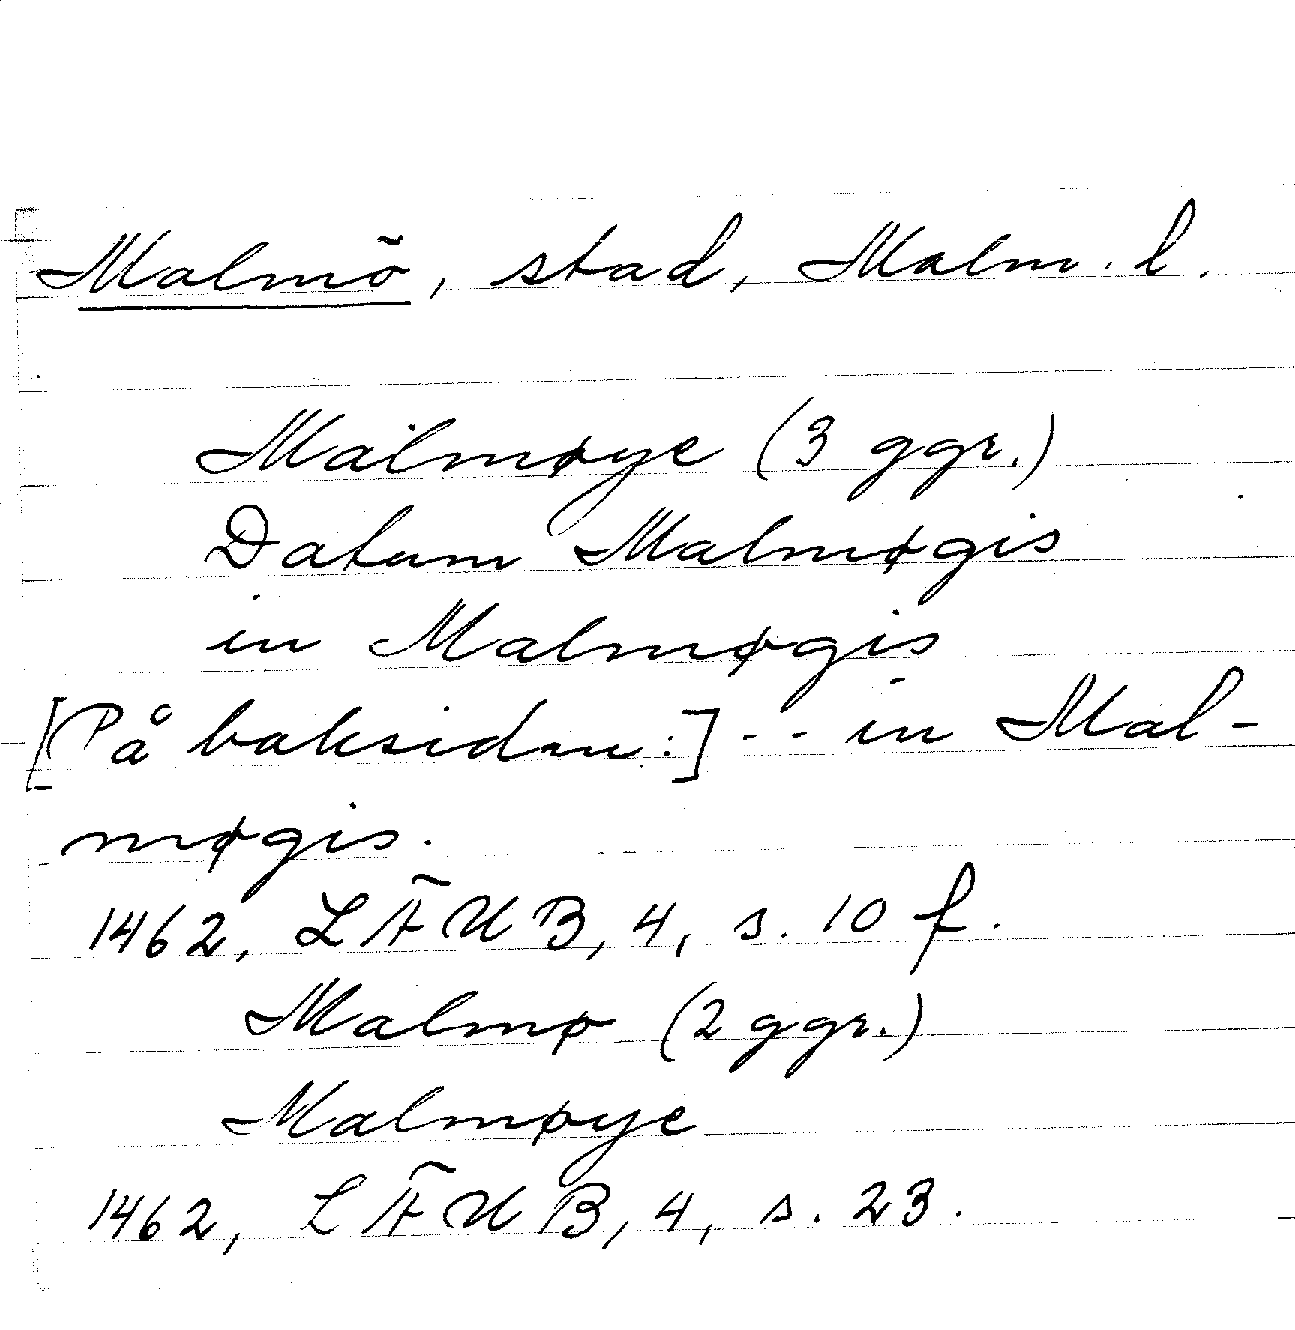 Malmö, stad, Malm. l.
Malmøye (3 ggr.)
Datum Malmøgis
in Malmøgis
[På baksidan:] - - in Mal-
møgis.
1462, LÄUB, 4, s. 10 f.
Malmø (2 ggr.)
Malmøye
1462, LÄUB, 4, s. 23.